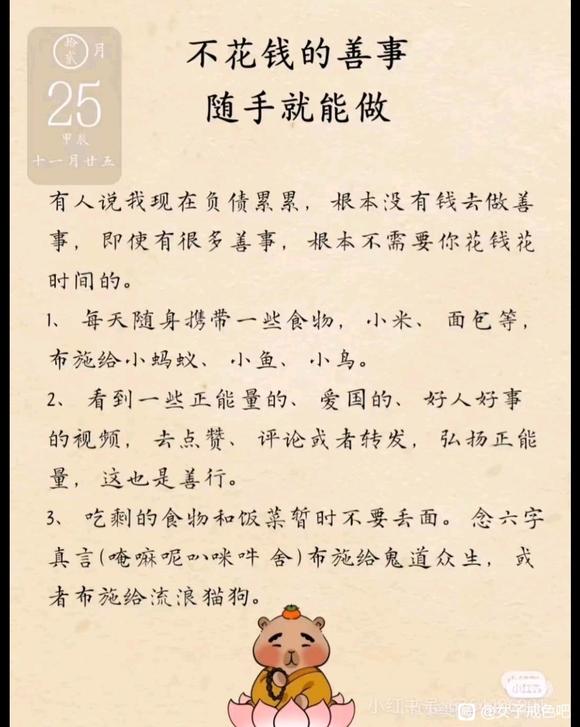 拾贰月
25
甲辰
十一月廿五
不花钱的善事
随手就能做
有人说我现在负债累累，根本没有钱去做善
事，即使有很多善事，根本不需要你花钱花
时间的。
1、每天随身携带一些食物，小米、面包等，
布施给小蚂蚁、小鱼、小鸟。
2、看到一些正能量的、爱国的、好人好事
的视频，去点赞、评论或者转发，弘扬正能
量，这也是善行。
3、吃剩的食物和饭菜暂时不要丢面。念六字
真言(唵嘛呢叭咪吽 舍)布施给鬼道众生，或
者布施给流浪猫狗。
小红书
@女子戒色吧